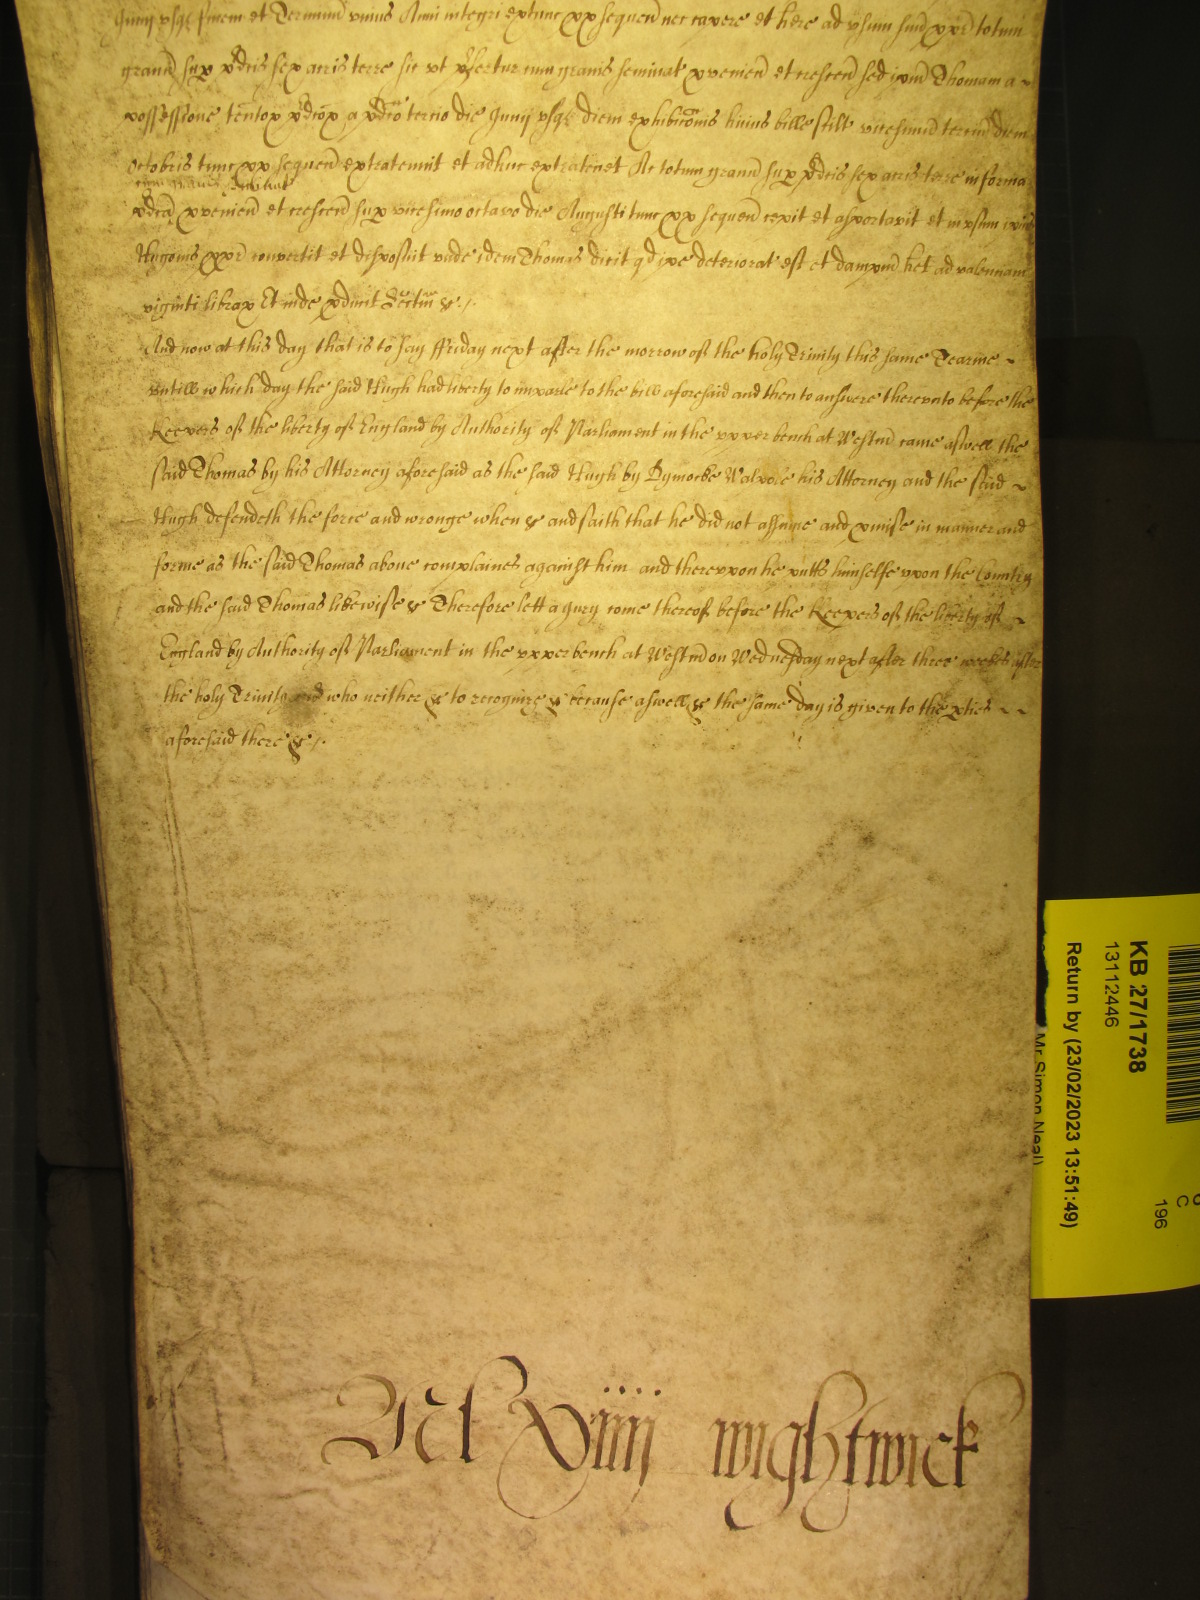 Junij vsq̨ finem et Terminū vnius Anni integri extunc p̱x sequen̄ nec capere et here ad vsum suū ppr̄ totum
granū sup p̱dcis sex acris terre sic vt p̱fertur cum granis seminat p̱venien̄ et crescen̄ sed ip̄m Thomam a
possessione teñtoꝝ p̱dcoꝝ a p̱dco tercio die Junij vsq̨ diem exhibic̄onis huius bille scilt vicesimū terciū diem
Octobris tunc p̱x sequen̄ extratenuit et adhuc extratenet Ac totum granū sup p̱dcis sex acris terre in forma
cum granis seminat
p̱dca p̱venien̄ et crescen̄ sup vicesimo octavo die Augusti tunc p̱x sequen̄ cepit et asportavit et in vsum ip̄ius
Hugonis ppr̄ convertit et disposuit vnde idem Thomas dicit qd ip̄e deteriorat est et dampnū het ad valenciam
viginti libraꝝ Et inde p̱ducit Sectam &c./.
And now at this day that is to say ffriday next after the morrow of the holy Trinity this same Tearme
vntill which day the said Hugh had liberty to imparle to the bill aforesaid and then to answere therevnto before the
Keepers of the liberty of England by Authority of Parliament in the vpper bench at Westm̄ came aswell the
said Thomas by his Attorney aforesaid as the said Hugh by Dymocke Walpole his Attorney and the said
Hugh defendeth the force and wronge when &c and saith that he did not assume and p̱mise in manner and
forme as the said Thomas above complaines against him and therevpon he putts himselfe vpon the Country
and the said Thomas likewise &c Therefore lett a Jury come thereof before the Keepers of the liberty of
England by Authority of Parliament in the vpper bench at Westm̄ on Wednesday next after three weekes after
the holy Trinity and who neither &c to recognize &c because aswell &c the same day is given to the p̱ties
aforesaid there &c /.
Rɫ Xiiij wightwick
KB 27/1738
13112446
Return by (23/02/2023 13:51:49)
Mr Simon Neal)
C
196